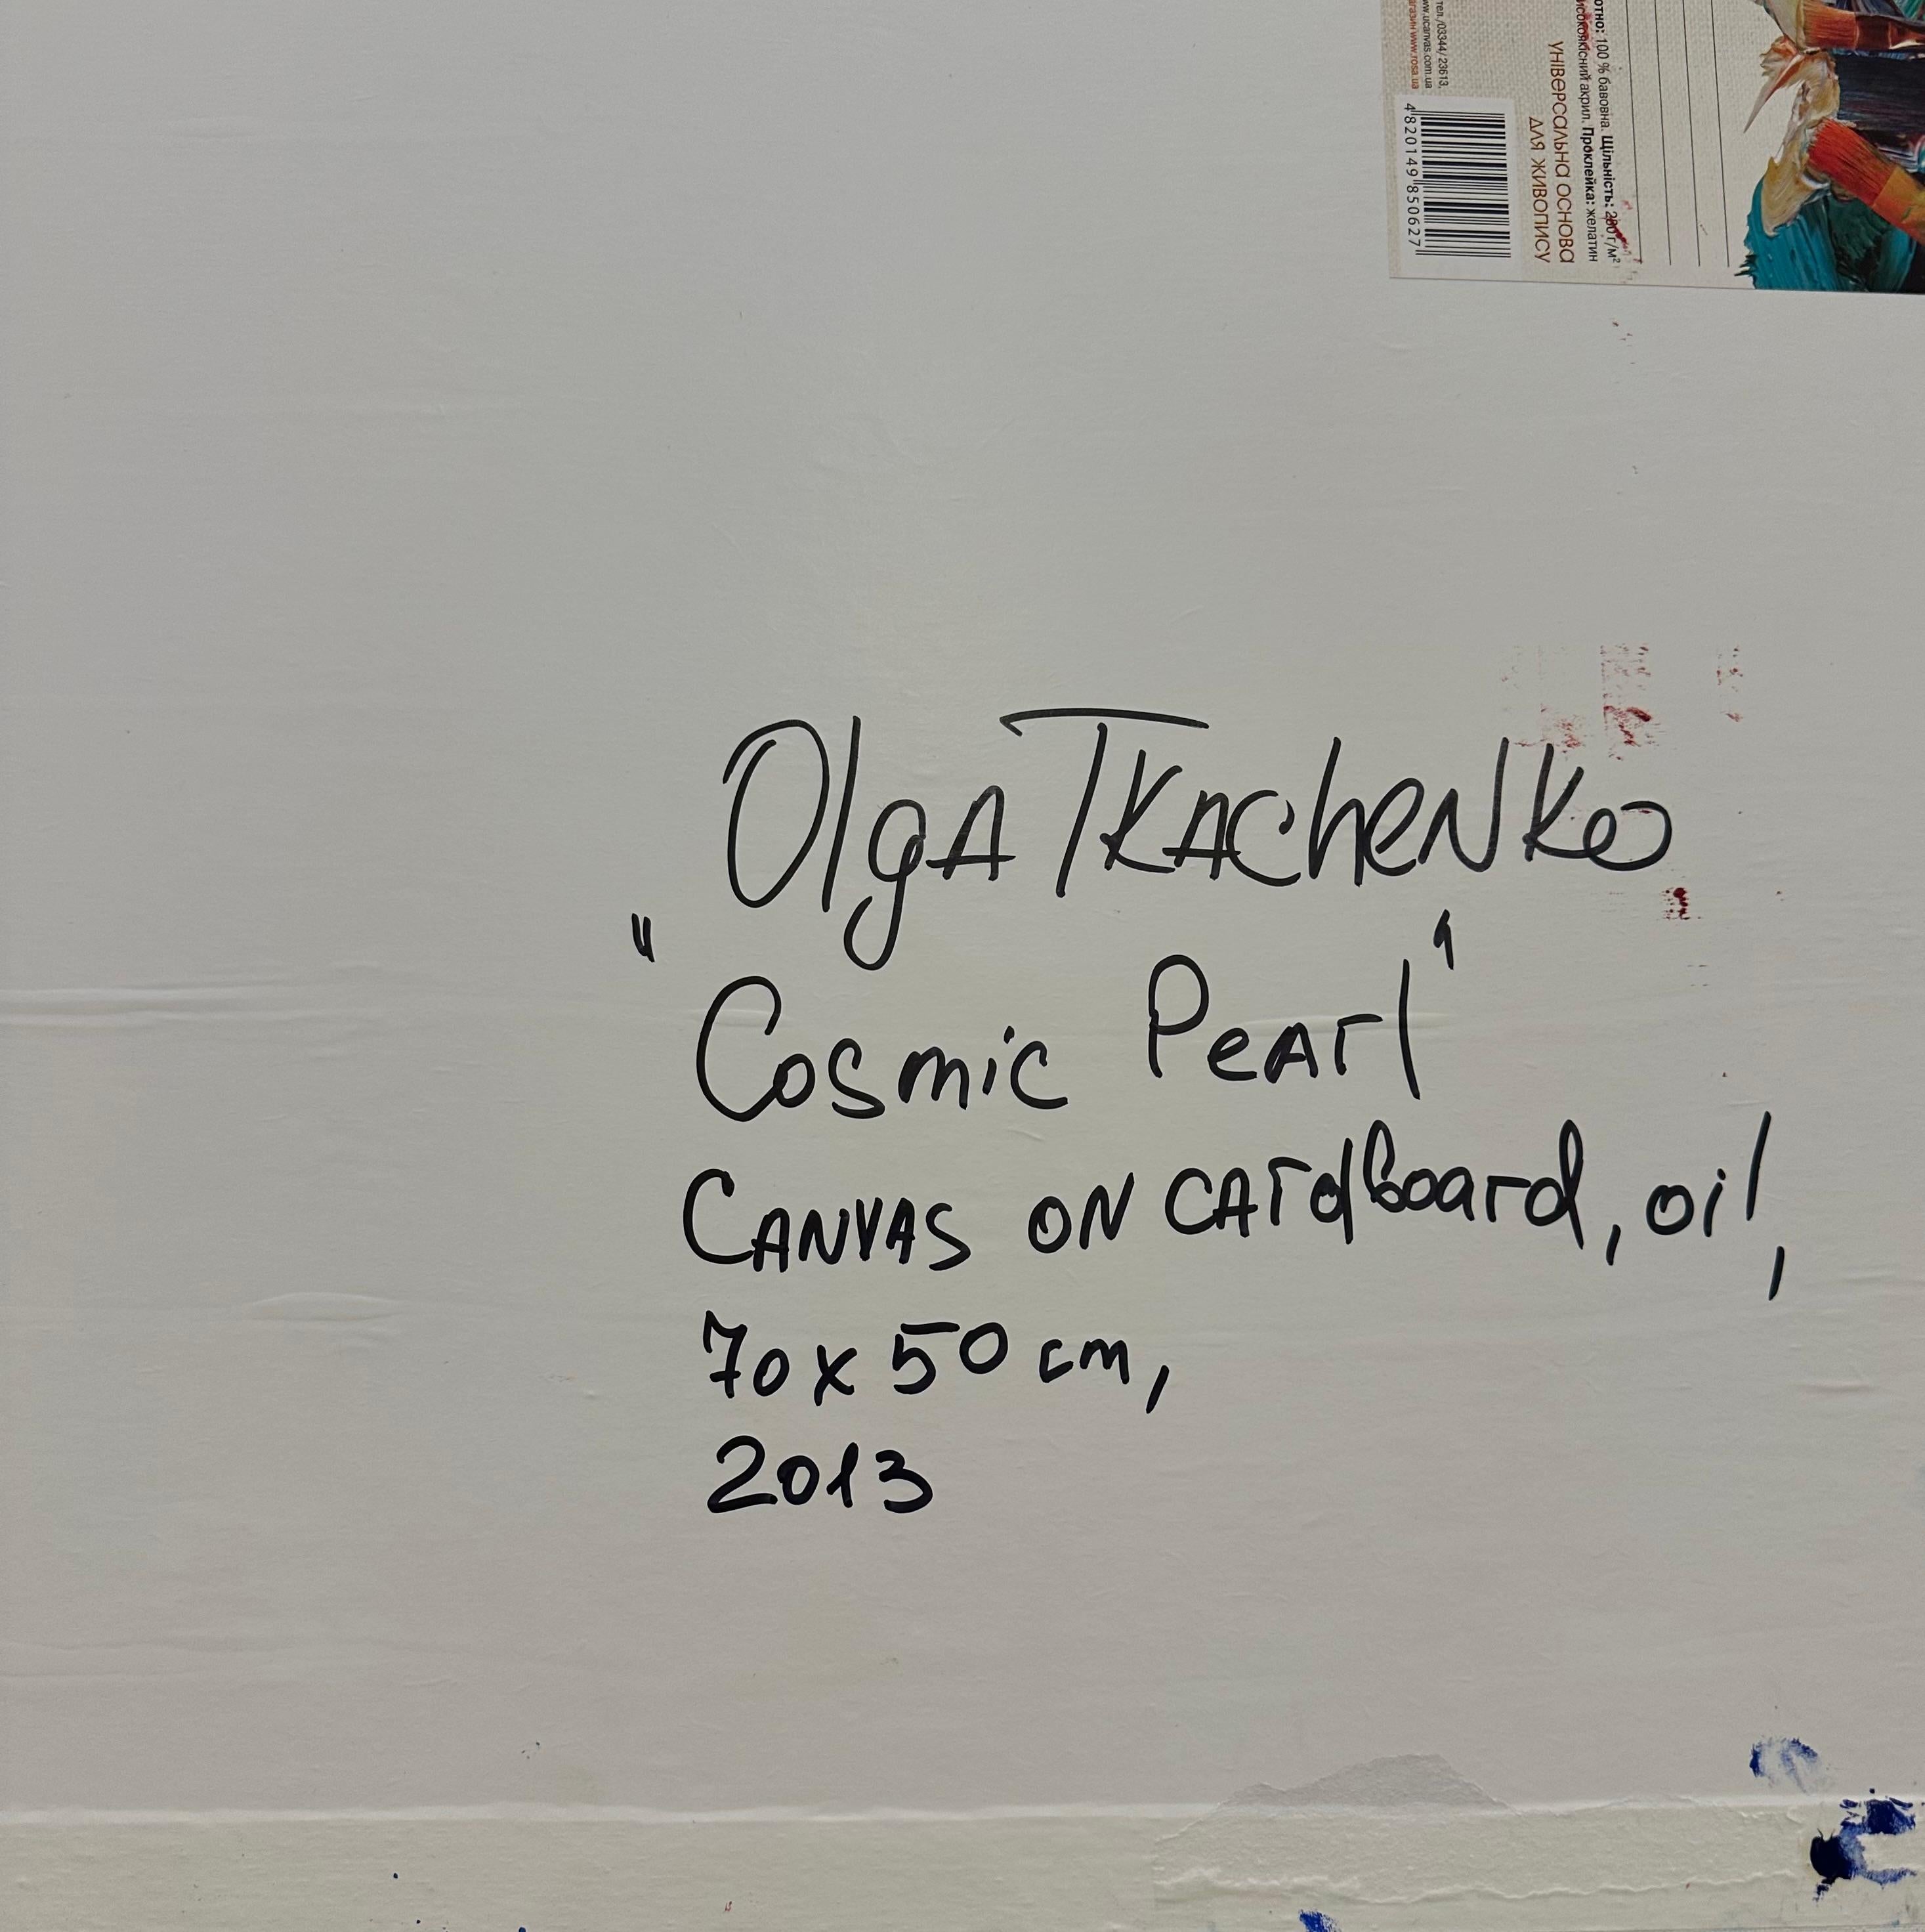 тел./03344/ 23613,
www.ucanvas.com.ua
www.rosa.ua
4 820149 850627
УНІВЕРСАЛЬНА ОСНОВА
ДЛЯ ЖИВОПИСУ
100 % бавовна. Щільність: 280 г/м²
акрил. Проклейка: желатин
Olga Tkachenko
"Cosmic Pearl"
Canvas on cardboard, oil,
70 x 50 cm,
2013